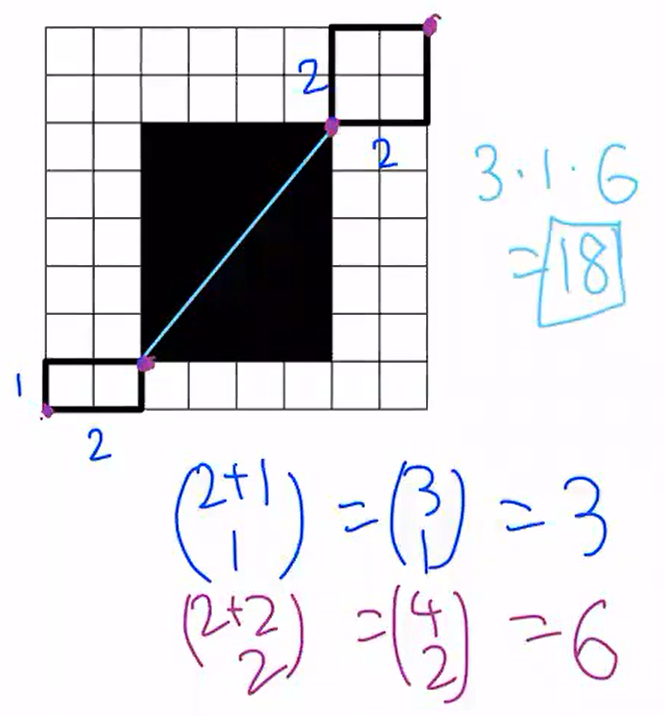 2
2
3·1·6
=18
1
2
(2+1 1) = (3 1) = 3
(2+2 2) = (4 2) = 6